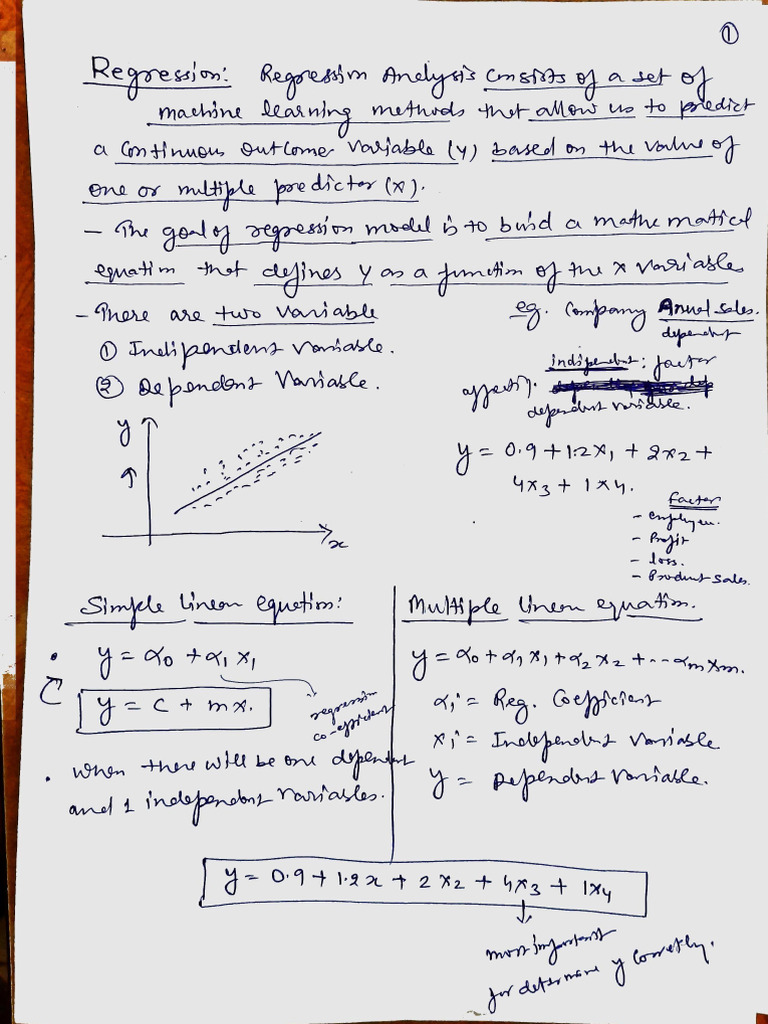 ①
Regression: Regression Analysis consists of a set of
machine learning methods that allow us to predict
a continuous outcome variable (y) based on the value of
one or multiple predictor (x).
- The goal of regression model is to build a mathematical
equation that defines y as a function of the x variables
- There are two variable
① Independent Variable.
② Dependent Variable.
eg. Company Annual sales.
dependent
independent: factor
affecting.
dependent variable.
y
x
y = 0.9 + 1.2x₁ + 2x₂ +
4x₃ + 1x₄.
Factor
- employee.
- Profit
- loss.
- Product sales.
Simple linear equation:
• y = α₀ + α₁x₁
y = c + mx.
regression
co-efficient
• when there will be one dependent
and 1 independent variables.
Multiple linear equation.
y = α₀ + α₁x₁ + α₂x₂ + -- αₘxₘ.
αᵢ = Reg. Coefficient
xᵢ = Independent Variable
y = Dependent Variable.
y = 0.9 + 1.2x + 2x₂ + 4x₃ + 1x₄
most important
for determine y correctly.